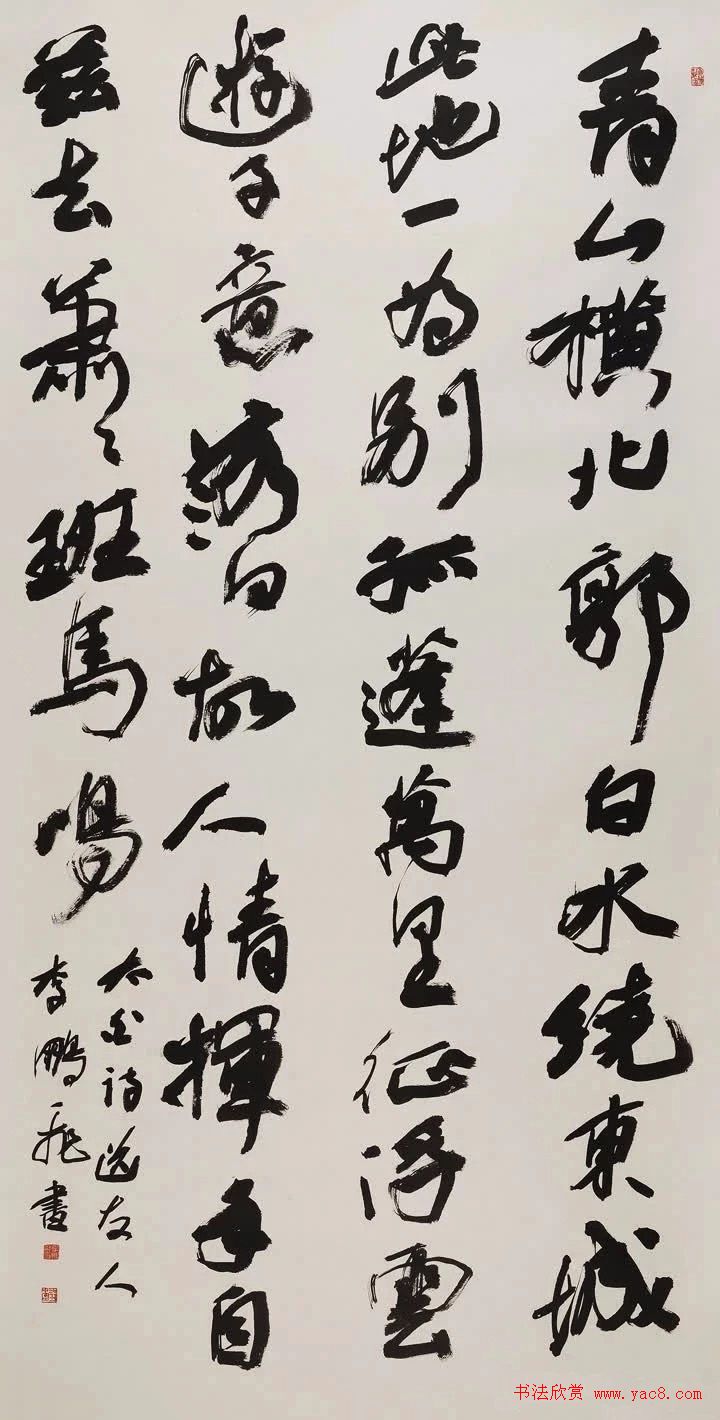 青山橫北郭白水繞東城
此地一为别孤蓬萬里征浮雲
遊子意落日故人情揮手自
兹去蕭々班馬鳴
太白诗送友人
李鵬飛書
书法欣赏 www.yac8.com